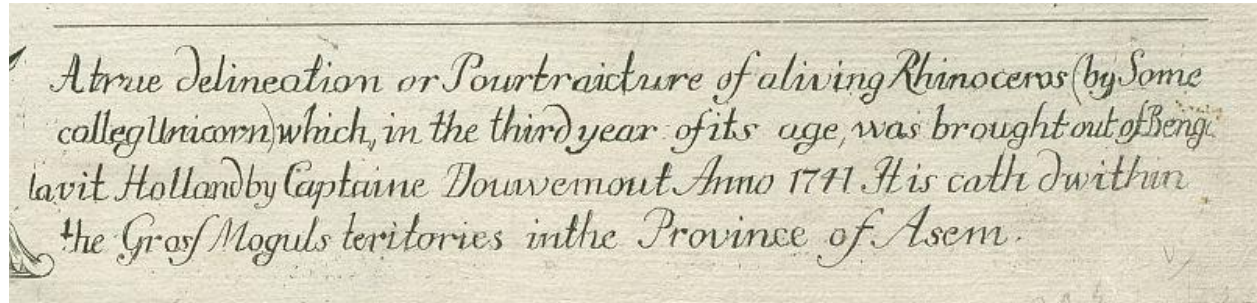 A true delineation or Pourtraicture of a living Rhinoceros (by Some
colleg Unicorn) which, in the third year of its age, was brought out of Beng
lavit Holland by Captaine Douwemout Anno 1741. It is cath d within
the Grosſ Moguls teritories in the Province of Asem.